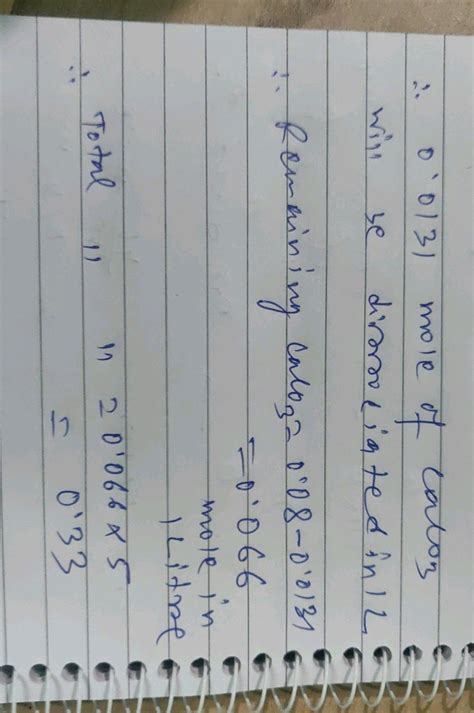 ∴ 0.0131 mole of CaCO3
will be dissociated in 1L
∴ Remaining CaCO3 = 0.08 - 0.0131
= 0.066
mole in
1 Litre
∴ Total " " = 0.066 x 5
= 0.33